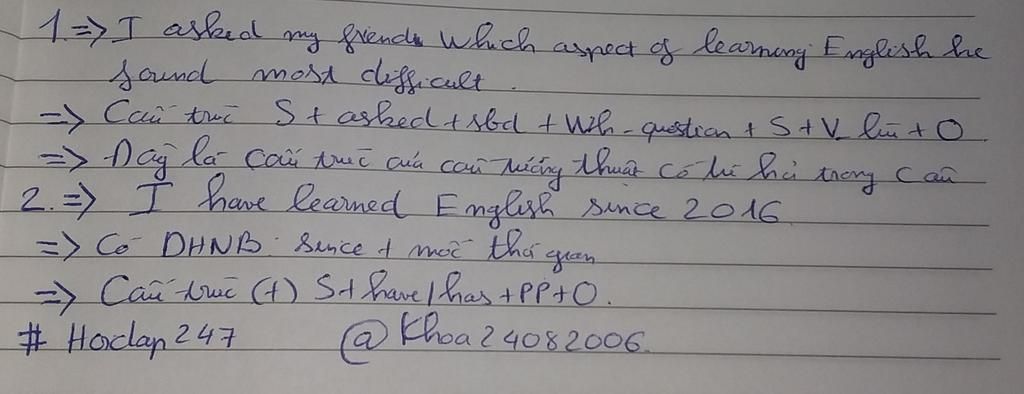 1. => I asked my friend which aspect of learning English he
found most difficult.
=> Cấu trúc S + asked + sbd + Wh-question + S + V lùi + O
=> Đây là cấu trúc của câu tường thuật có từ hỏi trong câu
2. => I have learned English since 2016
=> Có DHNB: since + mốc thời gian
=> Cấu trúc (+) S + have/has + PP + O.
# Hoclap247 @Khoa24082006.